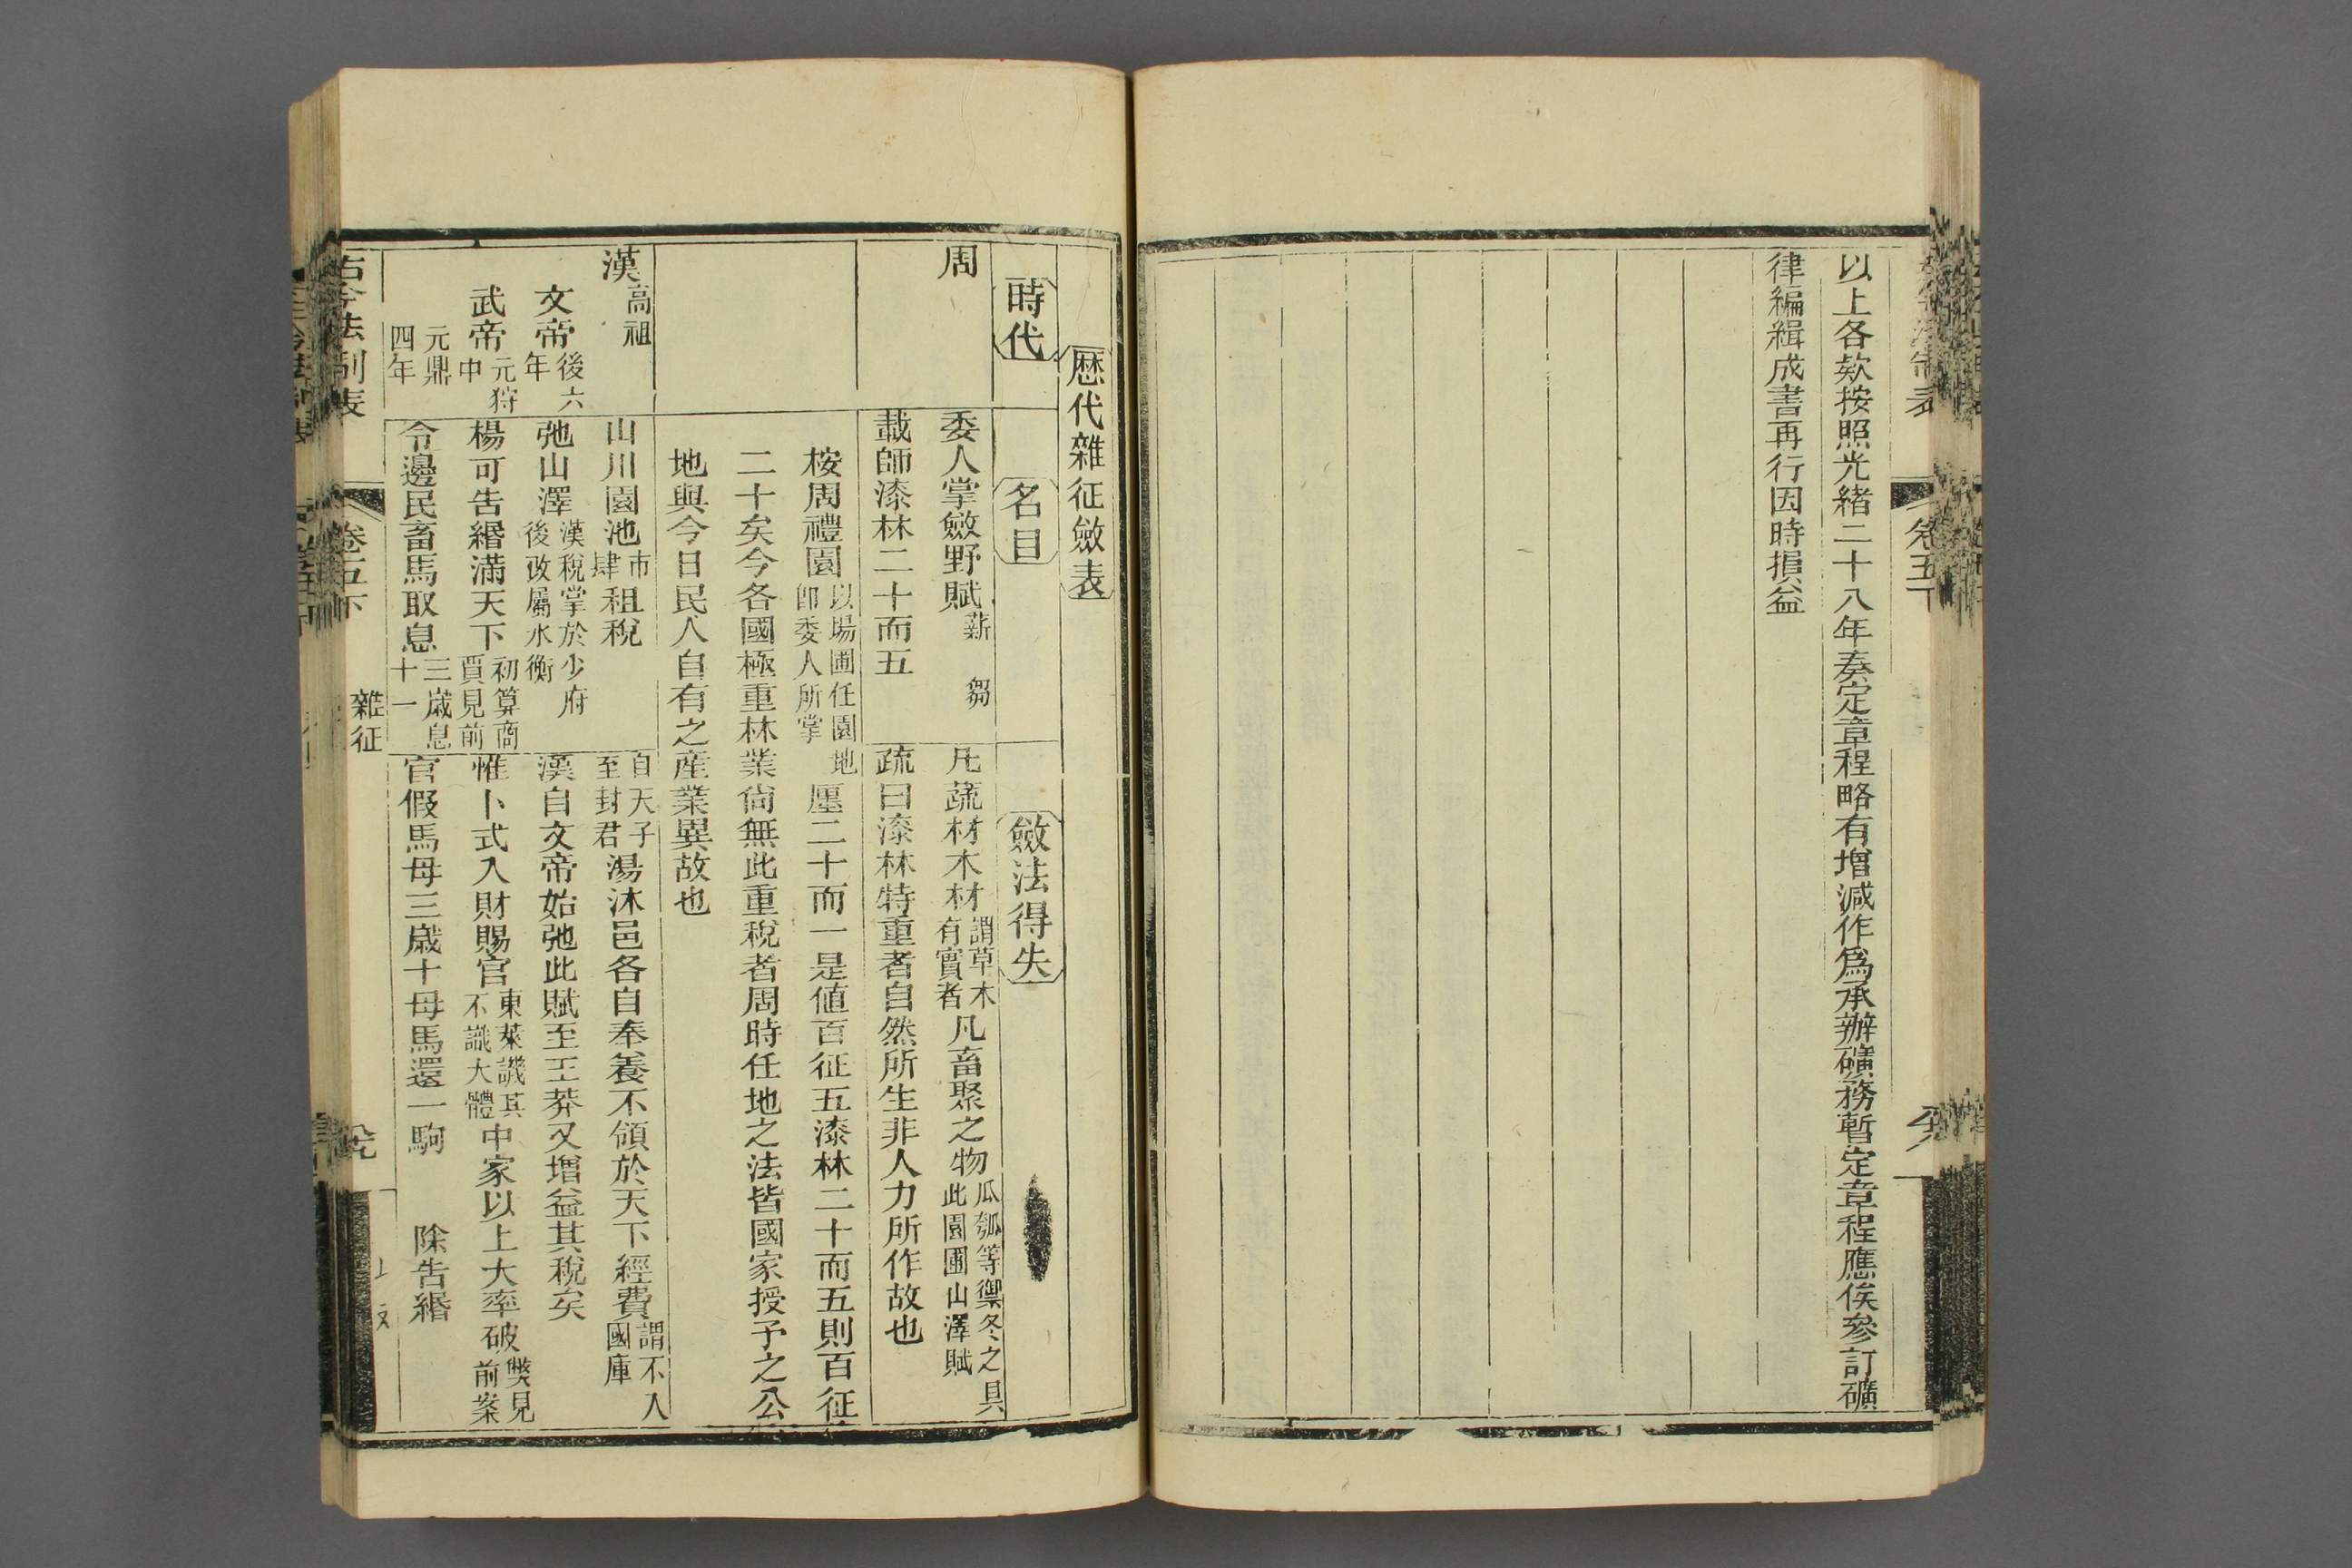 以上各欵按照光緒二十八年奏定章程略有增減作爲承辦礦務暫定章程應俟參訂礦
律編緝成書再行因時損益
卷五下
歷代雜征斂表
時代
名目
斂法得失
周
委人掌斂野賦薪芻
凡蔬材木材謂草木有實者凡畜聚之物瓜瓠等禦冬之具此園圃山澤賦
載師漆林二十而五
疏曰漆林特重者自然所生非人力所作故也
桉周禮園以場圃任園地卽委人所掌廛二十而一是値百征五漆林二十而五則百征
二十矣今各國極重林業尙無此重稅者周時任地之法皆國家授予之公
地與今日民人自有之產業異故也
漢高祖
山川園池市肆租稅
自天子至封君湯沐邑各自奉養不領於天下經費謂不入國庫
文帝後六年
弛山澤漢稅掌於少府後改屬水衡
漢自文帝始弛此賦至王莽又增益其稅矣
武帝元狩中
楊可告緡滿天下初算商賈見前
惟卜式入財賜官東萊譏其不識大體中家以上大率破獘見前案
元鼎四年
令邊民畜馬取息三歲息十一
官假馬母三歲十母馬還一駒 除告緡
古今法制表
卷五下
雜征